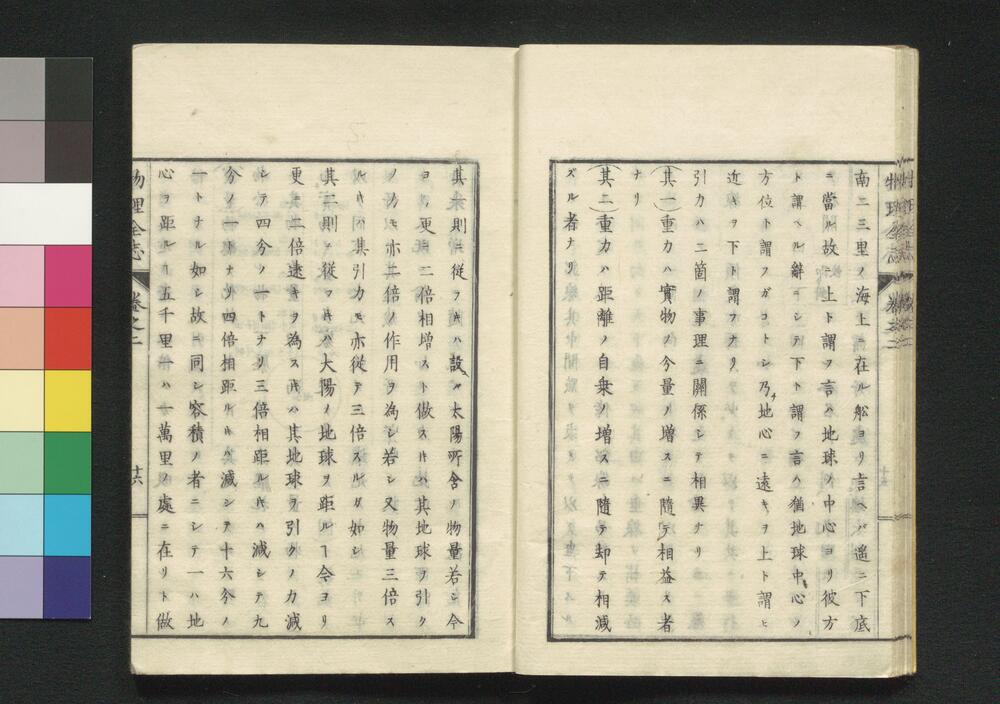 南二三里ノ海上ニ在ル舩ヨリ言ヘバ遥ニ下底
ニ當ル故ニ上ト謂フ言ハ地球ノ中心ヨリ彼方
ト謂ヘル辭ニシテ下ト謂フ言ハ猶地球中心ノ
方位ト謂フガコトシ乃チ地心ニ遠キヲ上ト謂ヒ
近キヲ下ト謂フナリ
引力ハ二箇ノ事理ニ關係シテ相異ナリ
(其一)重力ハ實物ノ分量ノ増スニ隨テ相益ス者
ナリ
(其二)重力ハ距離ノ自乗ノ増スニ隨テ却テ相減
ズル者ナリ
其一則ニ從フ𪜈ハ設ル太陽所含ノ物量若シ今
ヨリ更ニ二倍相増スト做ス𪜈ハ其地球ヲ引ク
ノ力モ亦二倍ノ作用ヲ為シ若シ又物量三倍ス
ル𪜈ハ其引力モ亦從テ三倍スルガ如シ
其二則ニ從フ𪜈ハ大陽ノ地球ヲ距ルヿ今ヨリ
更ニ二倍遠キヲ為ス𪜈ハ其地球ヲ引クノ力減
シテ四分ノ一トナリ三倍相距ル𪜈ハ減シテ九
分ノ一トナリ四倍相距ル𪜈ハ減シテ十六分ノ
一トナル如シ故ニ同シ容積ノ者ニシテ一ハ地
心ヲ距ルヿ五千里一ハ一萬里ノ處ニ在リト做
物理全志
卷之二
十六